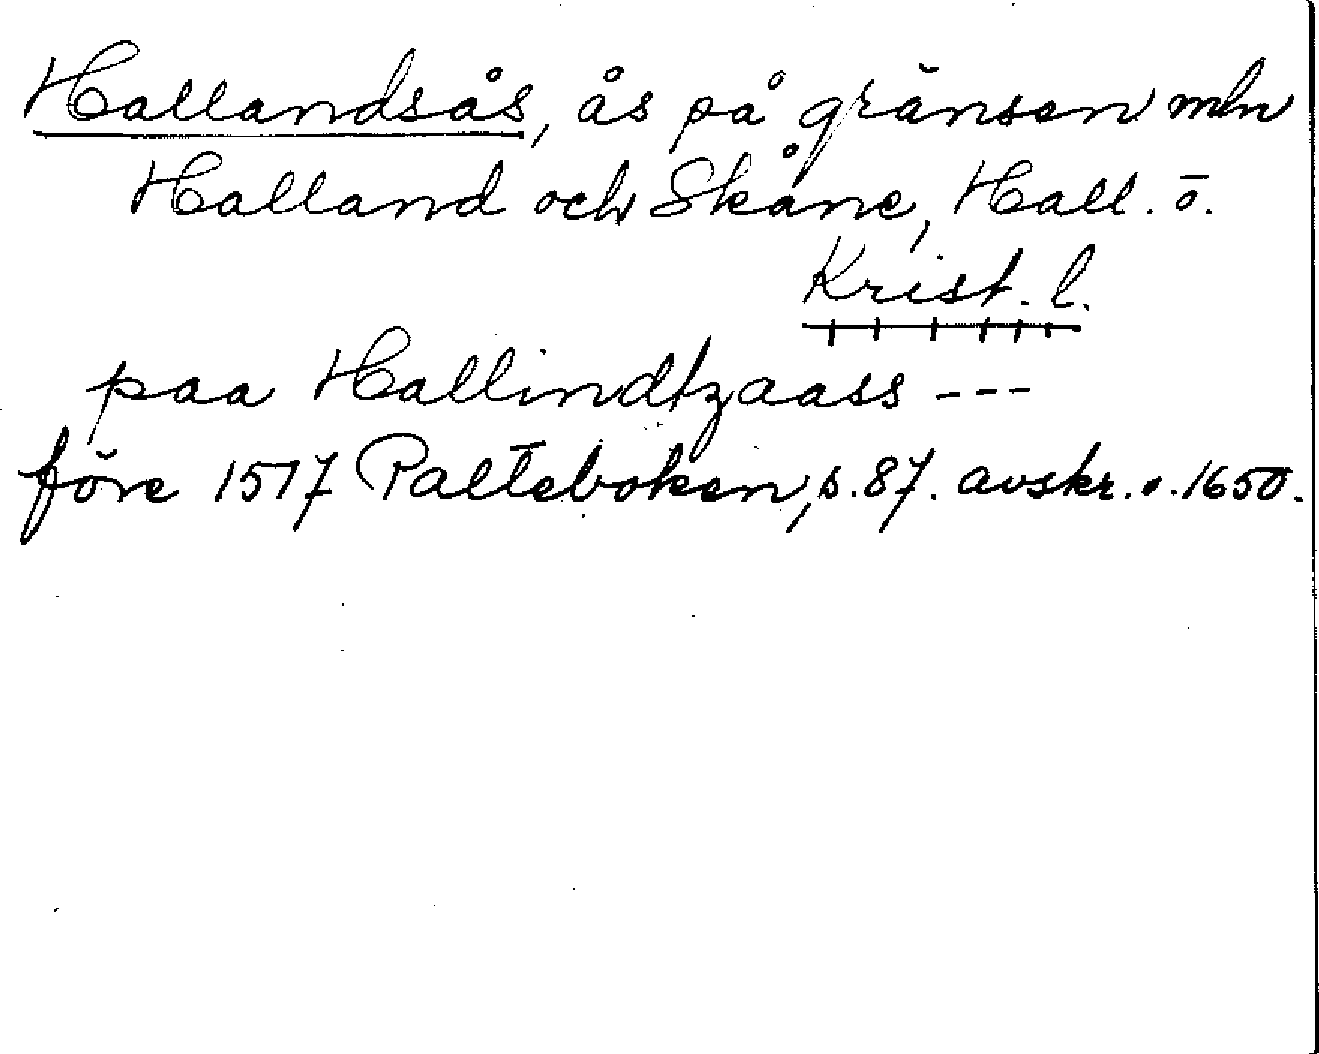 Hallandsås, ås på gränsen mln
Halland och Skåne, Hall. o.
Krist. l.
paa Hallindtzaass ---
före 1517 Palteboken, s. 87. avskr. o. 1650.